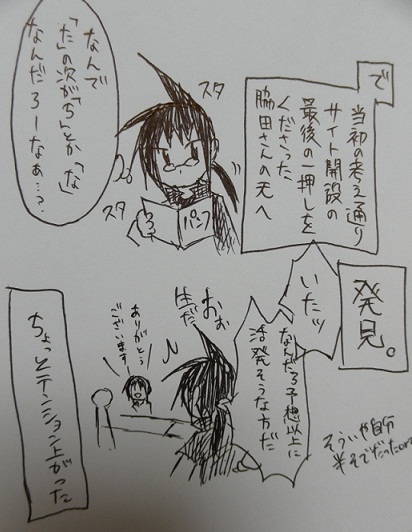 で
当初の考え通り
サイト開設の
最後の一押しを
くださった
脇田さんの元へ
スタ
スタ
パンフ
なんで
「た」の次が「ら」とか「な」
なんだろーなぁ…?
発見。
いたッ
なんだろ予想以上に
活発そうな方だ
おぉ
生だ
ありがとう
ございます
そういや自分
半そでだったorz
ちょっとテンション上がった